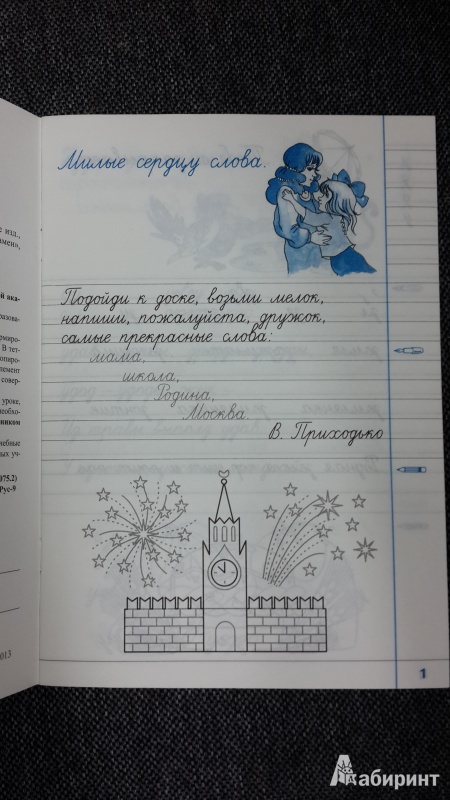 Милые сердцу слова.
Подойди к доске, возьми мелок,
напиши, пожалуйста, дружок,
самые прекрасные слова:
мама,
школа,
Родина,
Москва.
В. Приходько
1
е изд.,
амен»,
В тет-
уроке,
075.2)
Рус-9
013
Лабиринт